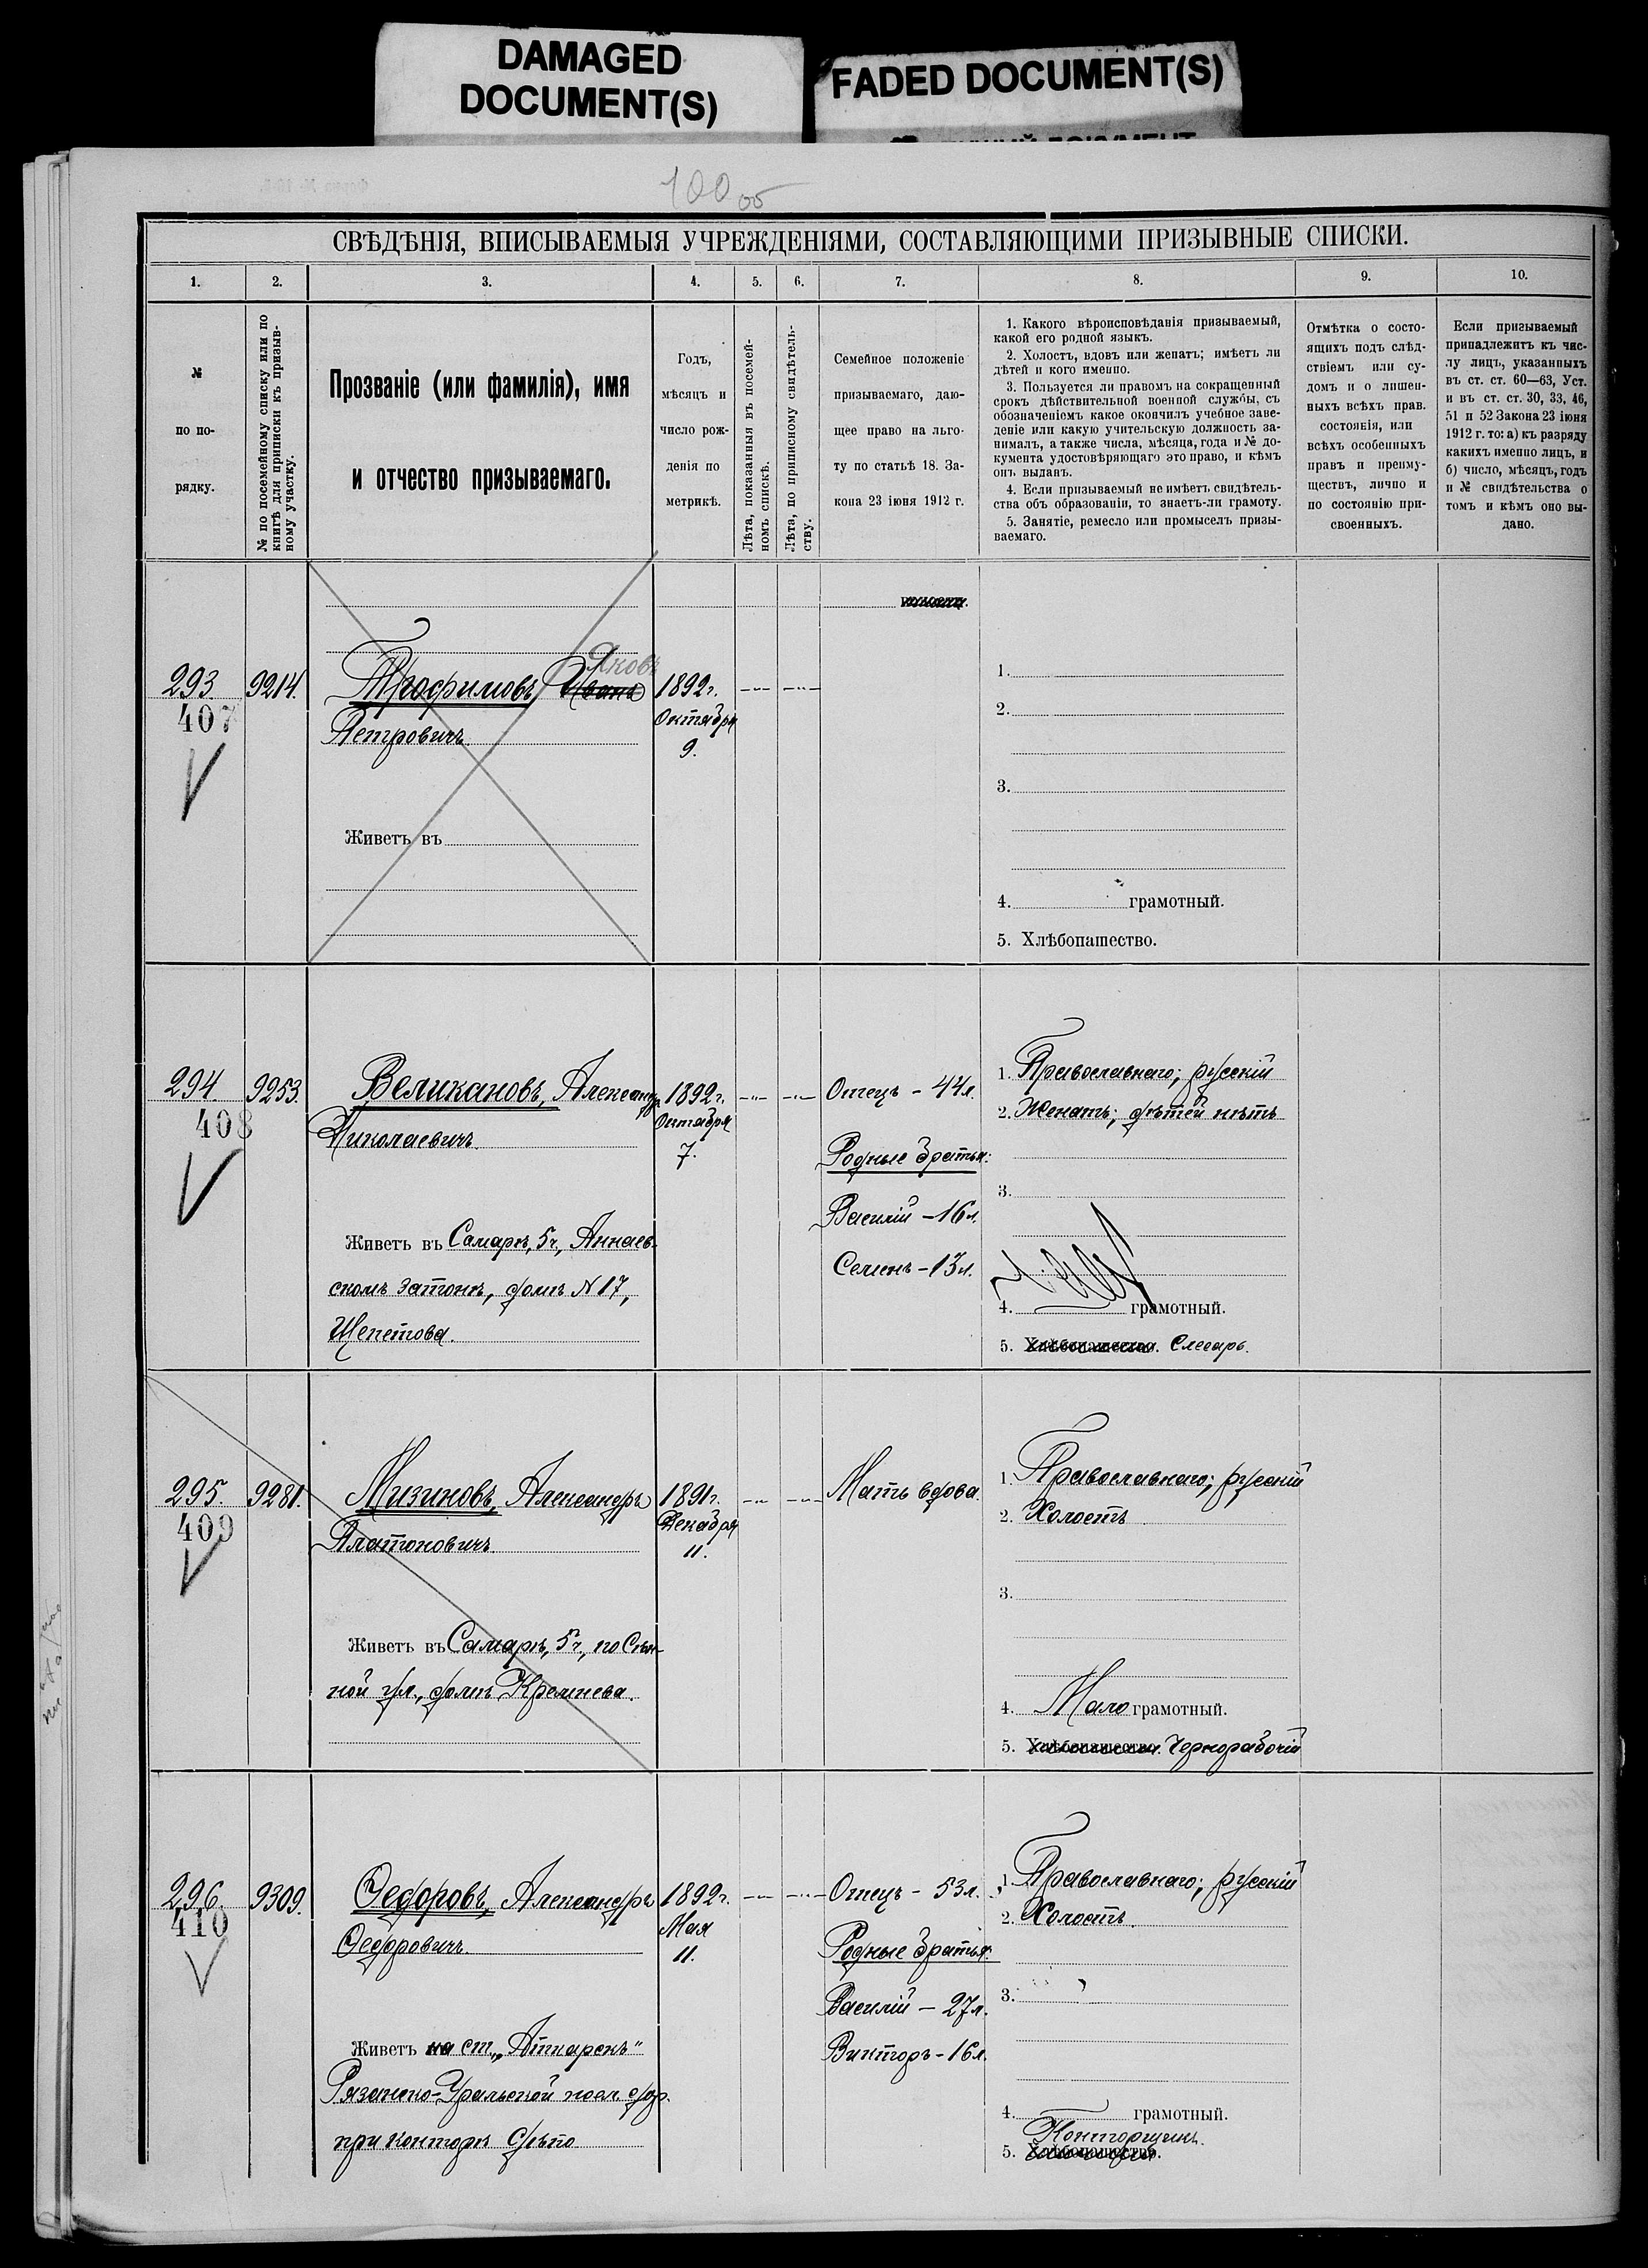 DAMAGED
DOCUMENT(S)
FADED DOCUMENT(S)
100 об
СВѢДѢНІЯ, ВПИСЫВАЕМЫЯ УЧРЕЖДЕНІЯМИ, СОСТАВЛЯЮЩИМИ ПРИЗЫВНЫЕ СПИСКИ.
1. 2. 3. 4. 5. 6. 7. 8. 9. 10.
№
по по-
рядку.
№ по посемейному списку или по
книгѣ для приписки къ призыв-
ному участку.
Прозваніе (или фамилія), имя
и отчество призываемаго.
Годъ,
мѣсяцъ и
число рож-
денія по
метрикѣ.
Лѣта, показанныя въ посемей-
номъ спискѣ.
Лѣта, по приписному свидѣтель-
ству.
Семейное положеніе
призываемаго, даю-
щее право на льго-
ту по статьѣ 18. За-
кона 23 іюня 1912 г.
1. Какого вѣроисповѣданія призываемый,
какой его родной языкъ.
2. Холостъ, вдовъ или женатъ; имѣетъ ли
дѣтей и кого именно.
3. Пользуется ли правомъ на сокращенный
срокъ дѣйствительной военной службы, съ
обозначеніемъ какое окончилъ учебное заве-
деніе или какую учительскую должность за-
нималъ, а также числа, мѣсяца, года и № до-
кумента удостовѣряющаго это право, и кѣмъ
онъ выданъ.
4. Если призываемый не имѣетъ свидѣтель-
ства объ образованіи, то знаетъ-ли грамоту.
5. Занятіе, ремесло или промыселъ призы-
ваемаго.
Отмѣтка о состо-
ящихъ подъ слѣд-
ствіемъ или су-
домъ и о лишен-
ныхъ всѣхъ прав.
состоянія, или
всѣхъ особенныхъ
правъ и преиму-
ществъ, лично и
по состоянію при-
своенныхъ.
Если призываемый
принадлежитъ къ чис-
лу лицъ, указанныхъ
въ ст. ст. 60—63, Уст.
и въ ст. ст. 30, 33, 46,
51 и 52 Закона 23 іюня
1912 г. то: а) къ разряду
какихъ именно лицъ, и
б) число, мѣсяцъ, годъ
и № свидѣтельства о
томъ и кѣмъ оно вы-
дано.
293. 9214.
407
Трофимовъ, Иванъ
Яковъ
Петровичъ
Живетъ въ
1892г.
Октября
9.
1.
2.
3.
4. грамотный.
5. Хлѣбопашество.
294. 9253.
408
Великановъ, Александръ
Николаевичъ.
Живетъ въ Самарѣ, 5ч., Аннаев-
скомъ Затонѣ, домъ №17,
Щепетова.
1892г.
Октября
7.
Отецъ - 44л.
Родные братья:
Василій - 16л.
Семенъ - 13л.
1. Православнаго; русскій
2. Женатъ; дѣтей нѣтъ
3.
4. грамотный.
5. Хлѣбопашество. Слесарь.
295. 9281.
409
Мизиновъ, Александръ
Платоновичъ
Живетъ въ Самарѣ, 5ч., по Сѣн-
ной ул., домъ Кремнева.
1891г.
Декабря
11.
Мать вдова.
1. Православнаго; русскій
2. Холостъ
3.
4. Мало грамотный.
5. Хлѣбопашество. Чернорабочій
296. 9309.
410
Ѳедоровъ, Александръ
Ѳедоровичъ.
Живетъ на ст. „Аткарскъ"
Рязанско-Уральской жел. дор.
при конторѣ депо
1892г.
Мая
11.
Отецъ - 53л.
Родные братья:
Василій - 27л.
Викторъ - 16л.
1. Православнаго; русскій
2. Холостъ.
3.
4. грамотный.
Конторщикъ.
5. Хлѣбопашество.